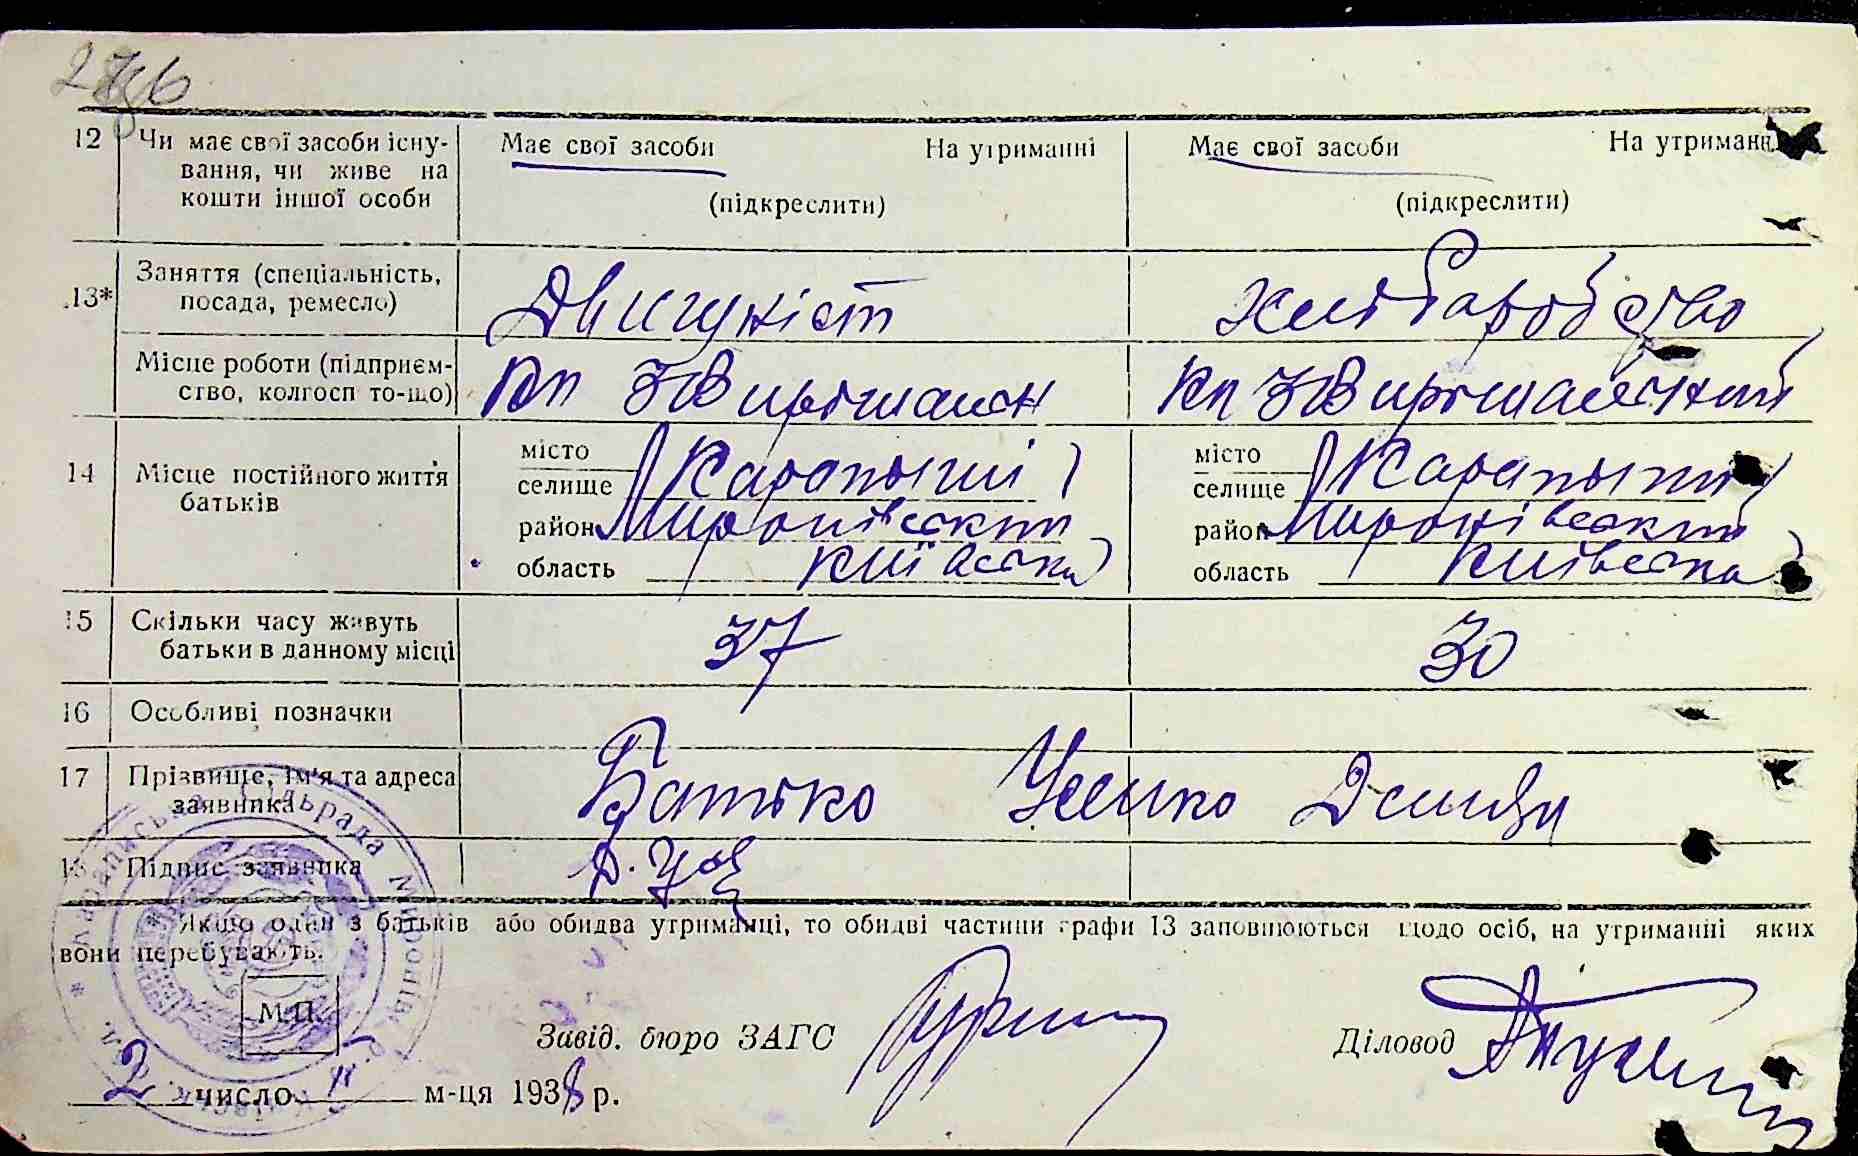 12 Чи має свої засоби існу-
вання, чи живе на
кошти іншої особи
Має свої засоби На утриманні
(підкреслити)
Має свої засоби На утриманн
(підкреслити)
13* Заняття (спеціальність,
посада, ремесло)
Двигуніст
хліборобство
Місце роботи (підприєм-
ство, колгосп то-що)
14 Місце постійного життя
батьків
місто
селище Карапиші
район Миронівський
область Київська
місто
селище Карапиші
район Миронівський
область Київська
15 Скільки часу живуть
батьки в данному місці
37
30
16 Особливі позначки
17 Прізвище, ім'я та адреса
заявника
Батько Усенко Демид
18 Підпис заявника
Якщо один з батьків або обидва утриманці, то обидві частини графи 13 заповнюються щодо осіб, на утриманні яких
вони перебувають.
М.П.
Завід. бюро ЗАГС
Діловод
2 число м-ця 1938 р.